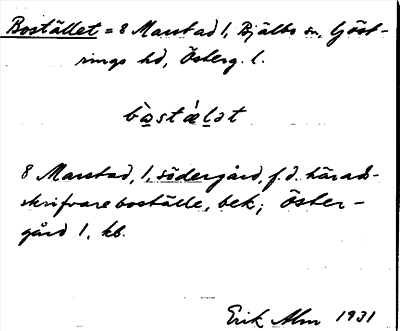 Bostället = 8 Marstad 1, Bjälbo sn, Göst-
rings hd, Österg. l.
bo̱stä́lət
8 Marstad, 1, södergård, f.d. härads-
skrifvareboställe, bek; Öster-
gård 1, kb.
Erik Alm 1931